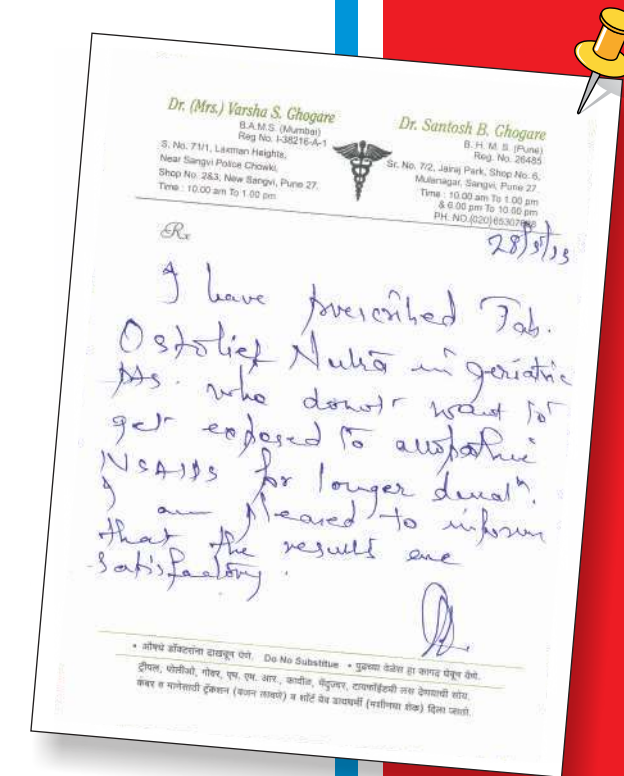 Dr. (Mrs.) Varsha S. Ghogare
B.A.M.S. (Mumbai)
Reg No. I-38216-A-1
S. No. 71/1, Laxman Heights,
Near Sangvi Police Chowki,
Shop No. 2&3, New Sangvi, Pune 27.
Time : 10.00 am To 1.00 pm
Dr. Santosh B. Ghogare
B. H. M. S. (Pune)
Reg. No. 26485
Sr. No. 7/2, Jairaj Park, Shop No. 6,
Mulanagar, Sangvi, Pune 27
Time : 10.00 am To 1.00 pm
& 6.00 pm To 10.00 pm
PH. NO.(020)
Rx
I have prescribed Tab.
Ostolief Nutra in geriatric
pts. who donot want to
get exposed to allopathic
NSAIDS for longer duratn.
I am pleased to inform
that the results are
satisfactory.
• औषधे डॉक्टरांना दाखवून घेणे. Do No Substitue • पुढच्या वेळेस हा कागद घेवून येणे.
ट्रीपल, पोलीओ, गोवर, एम. एम. आर., कावीळ, मेंदुज्वर, टायफॉईडची लस देण्याची सोय.
कंबर व मानेसाठी ट्रॅक्शन (वजन लावणे) व शॉर्ट वेव डायथर्मी (मशीनचा शेक) दिला जातो.